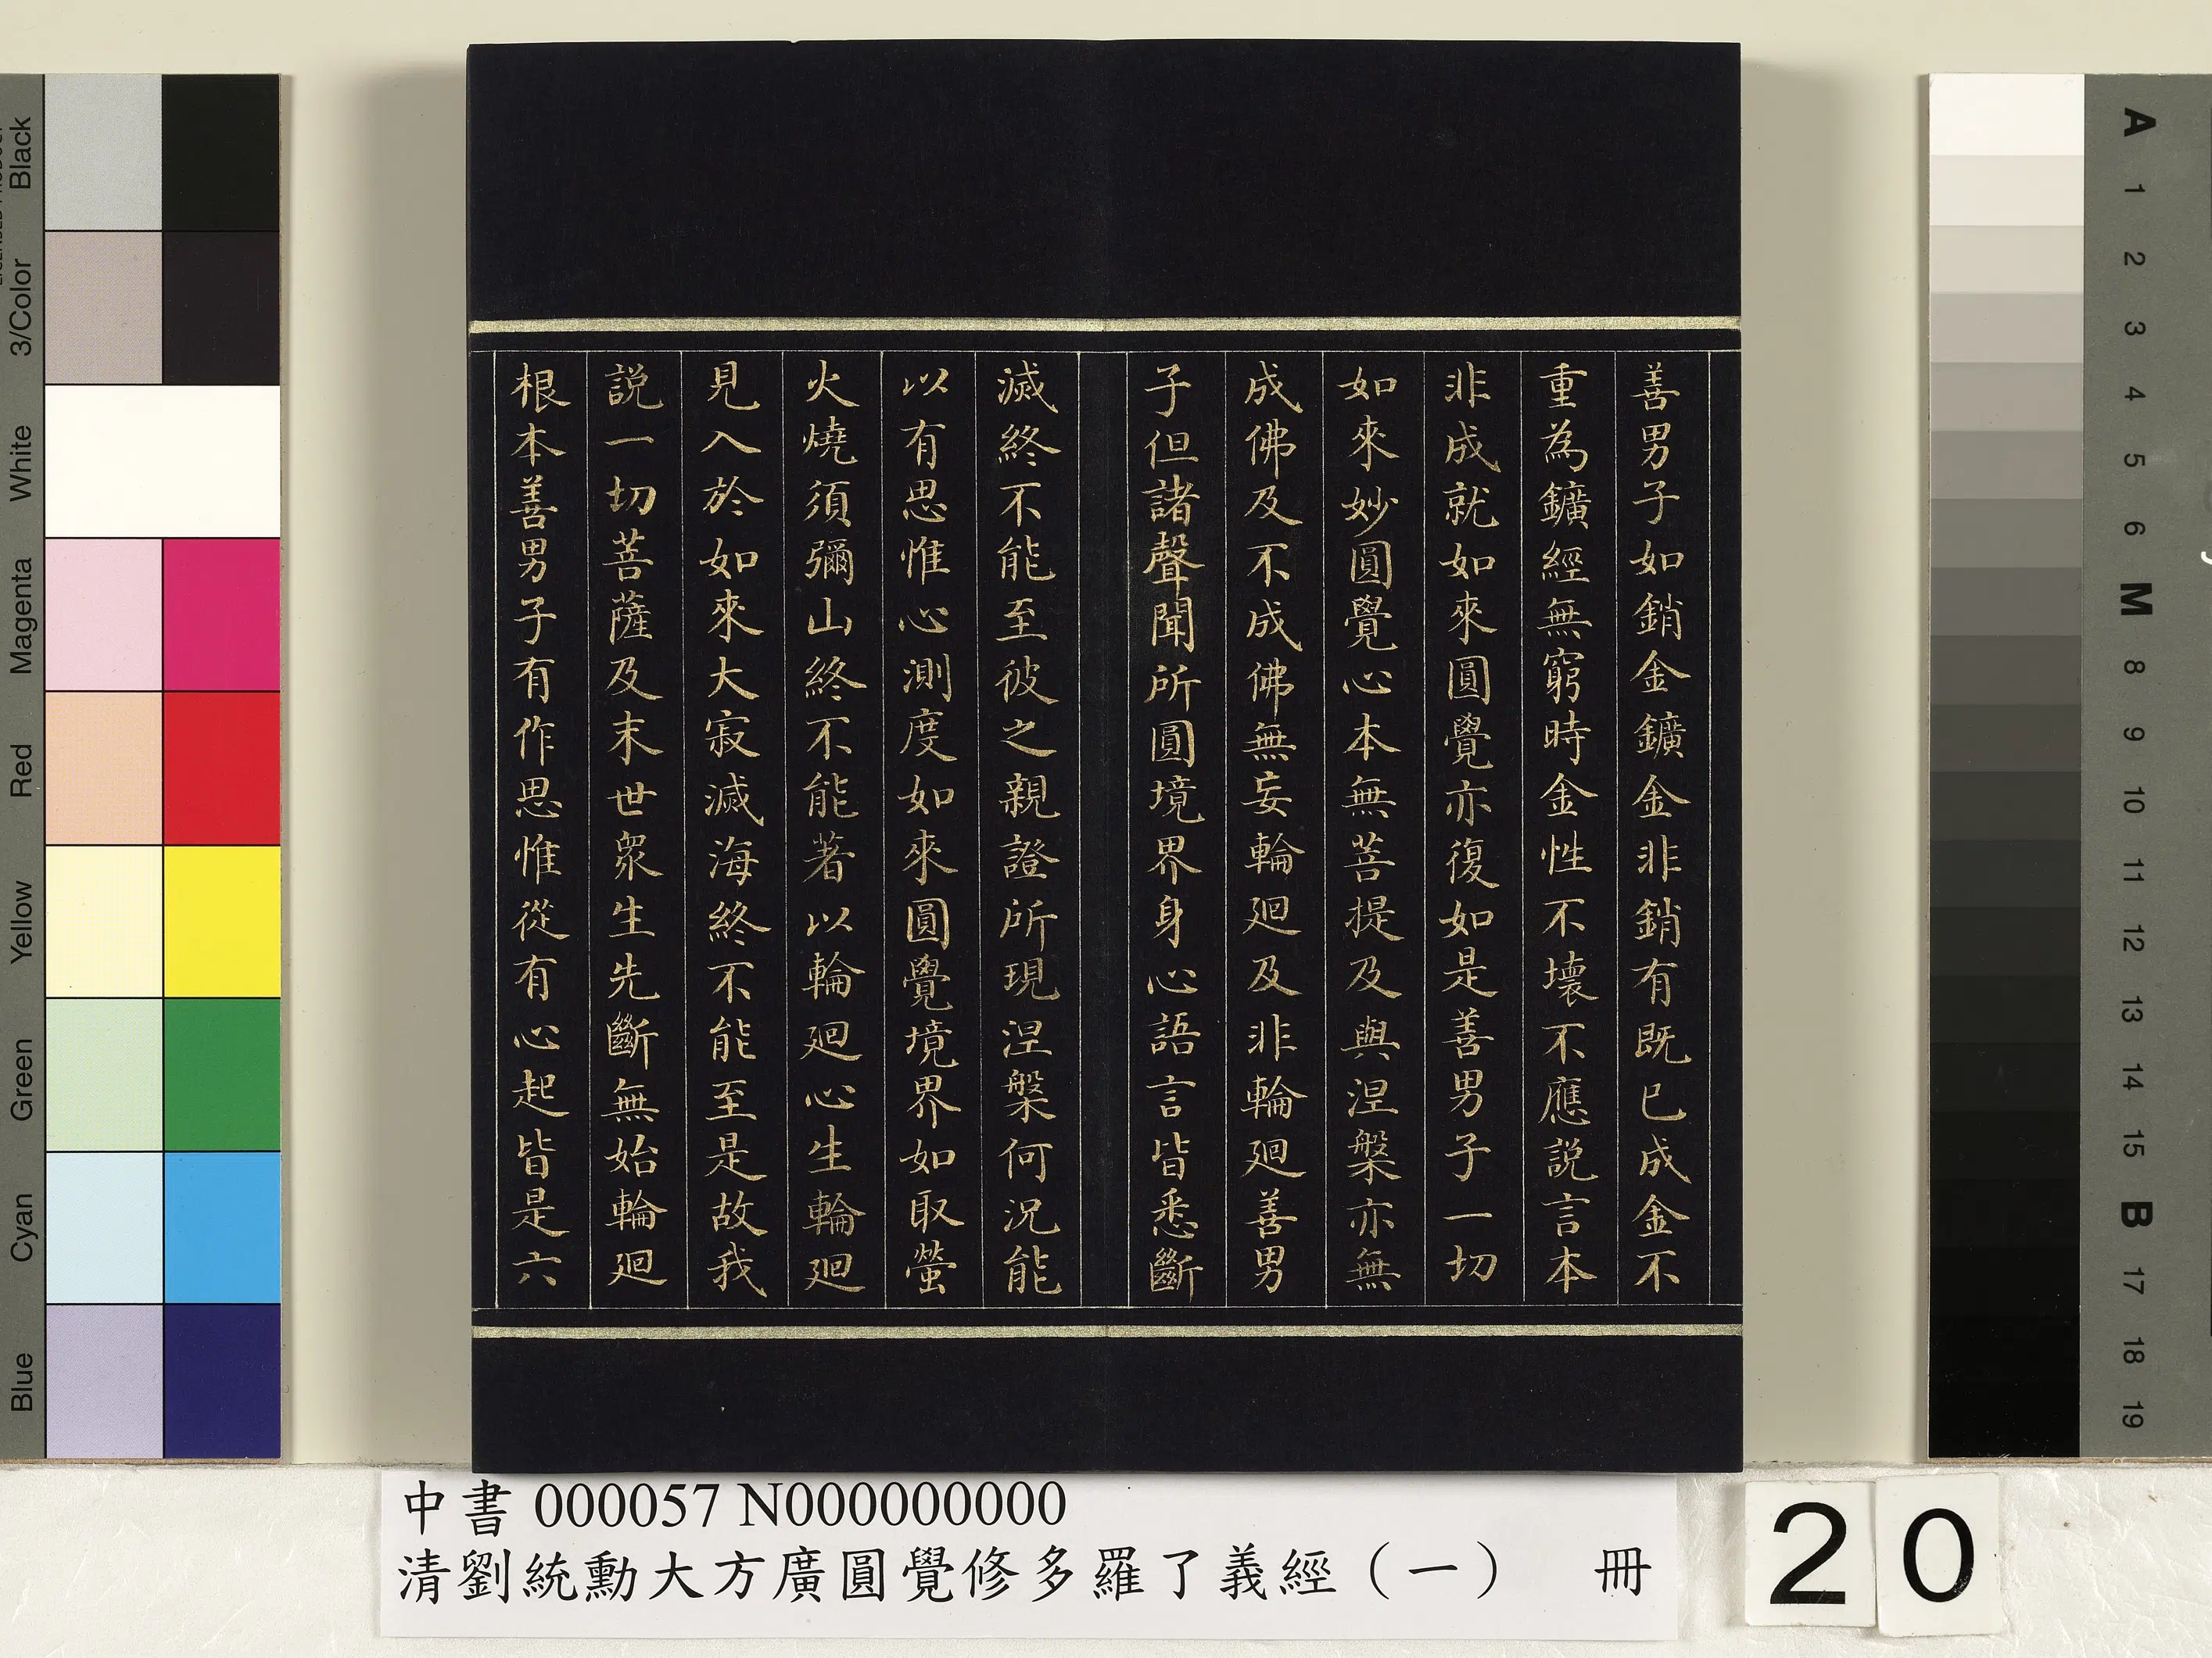 善男子如銷金鑛金非銷有既已成金不
重為鑛經無窮時金性不壞不應説言本
非成就如來圓覺亦復如是善男子一切
如來妙圓覺心本無菩提及與涅槃亦無
成佛及不成佛無妄輪廻及非輪廻善男
子但諸聲聞所圓境界身心語言皆悉斷
滅終不能至彼之親證所現涅槃何況能
以有思惟心測度如來圓覺境界如取螢
火燒須彌山終不能著以輪廻心生輪廻
見入於如來大寂滅海終不能至是故我
説一切菩薩及末世眾生先斷無始輪廻
根本善男子有作思惟從有心起皆是六
中書 000057 N000000000
清劉統勳大方廣圓覺修多羅了義經（一） 冊
20
Black
3/Color
White
Magenta
Red
Yellow
Green
Cyan
Blue
A
1
2
3
4
5
6
M
8
9
10
11
12
13
14
15
B
17
18
19